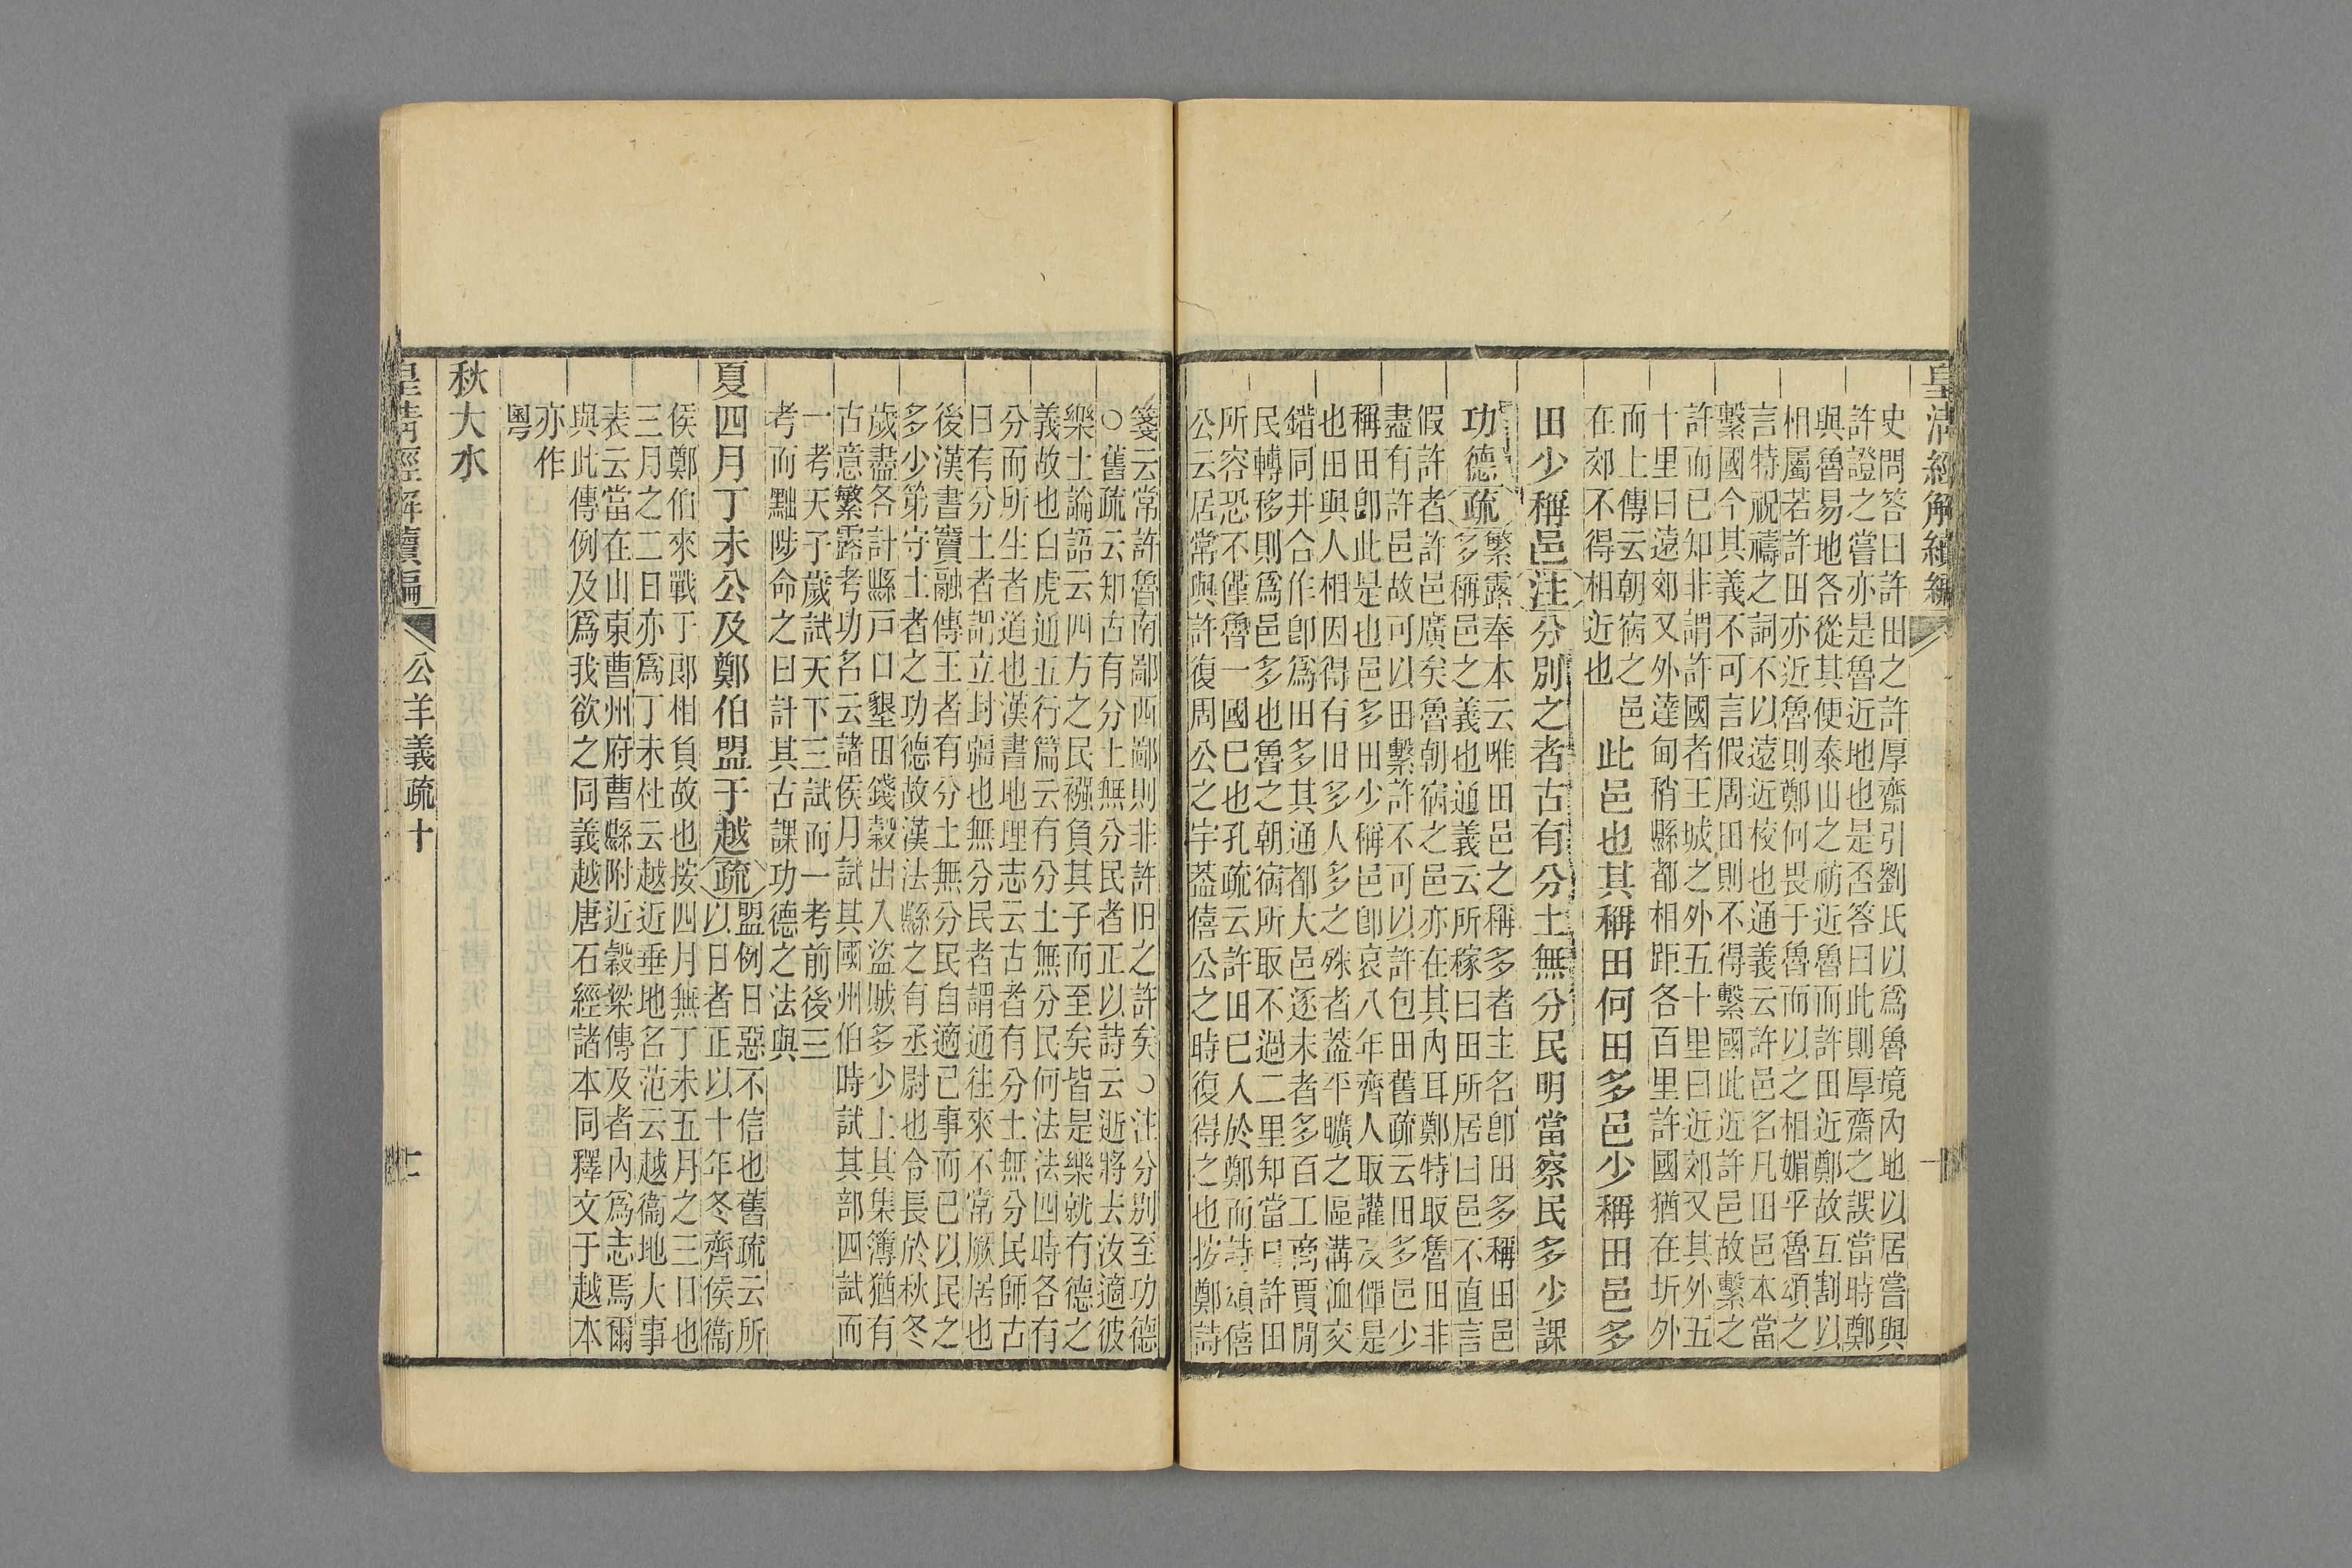 皇清經解續編
史問答曰許田之許厚齋引劉氏以爲魯境內地以居當與
許證之嘗亦是魯近地也是否答曰此則厚齋之誤當時鄭
與魯易地各從其便泰山之祊近魯而許田近鄭故互割以
相屬若許田亦近魯則鄭何畏于魯而以之相媚乎魯頌之
言特祝禱之詞不以遠近校也通義云許邑名凡田邑本當
繫國今其義不可言假周田則不得繫國此近許邑故繫之
許而已知非謂許國者王城之外五十里曰近郊又其外五
十里曰遠郊又外達甸稍縣都相距各百里許國猶在圻外
而上傳云朝宿之邑
在郊不得相近也
此邑也其稱田何田多邑少稱田邑多
田少稱邑注分別之者古有分土無分民明當察民多少課
功德疏
繁露奉本云唯田邑之稱多者主名卽田多稱田邑
多稱邑之義也通義云所稼曰田所居曰邑不直言
假許者許邑廣矣魯朝宿之邑亦在其內耳鄭特取魯田非
盡有許邑故可以田繫許不可以許包田舊疏云田多邑少
稱田卽此是也邑多田少稱邑卽哀八年齊人取讙及僤是
也田與人相因得有田多人多之殊者蓋平曠之區溝洫交
錯同井合作卽爲田多其通都大邑逐末者多百工商賈閒
民轉移則爲邑多也魯之朝宿所取不過二里知當曰許田
所容恐不僅魯一國已也孔疏云許田已人於鄭而詩頌僖
公云居常與許復周公之宇葢僖公之時復得之也按鄭詩
箋云常許魯南鄙西鄙則非許田之許矣○注分別至功德
○舊疏云知古有分土無分民者正以詩云逝將去汝適彼
樂土論語云四方之民襁負其子而至矣皆是樂就有德之
義故也白虎通五行篇云有分土無分民何法法四時各有
分而所生者道也漢書地理志云古者有分土無分民師古
曰有分土者謂立封疆也無分民者謂通往來不常厥居也
後漢書竇融傳王者有分土無分民自適已事而已以民之
多少第守土者之功德故漢法縣之有丞尉也令長於秋冬
歲盡各計縣戶口墾田錢穀出入盜賊多少上其集簿猶有
古意繁露考功名云諸侯月試其國州伯時試其部四試而
一考天子歲試天下三試而一考前後三
考而黜陟命之曰計其古課功德之法與
夏四月丁未公及鄭伯盟于越疏
盟例日惡不信也舊疏云所
以日者正以十年冬齊侯衞
侯鄭伯來戰于郎相負故也按四月無丁未五月之三日也
三月之二日亦爲丁未杜云越近垂地名范云越衞地大事
表云當在山東曹州府曹縣附近穀梁傳及者內爲志焉爾
與此傳例及爲我欲之同義越唐石經諸本同釋文于越本
亦作
粵
秋大水
皇清經解續編
公羊義疏十
二